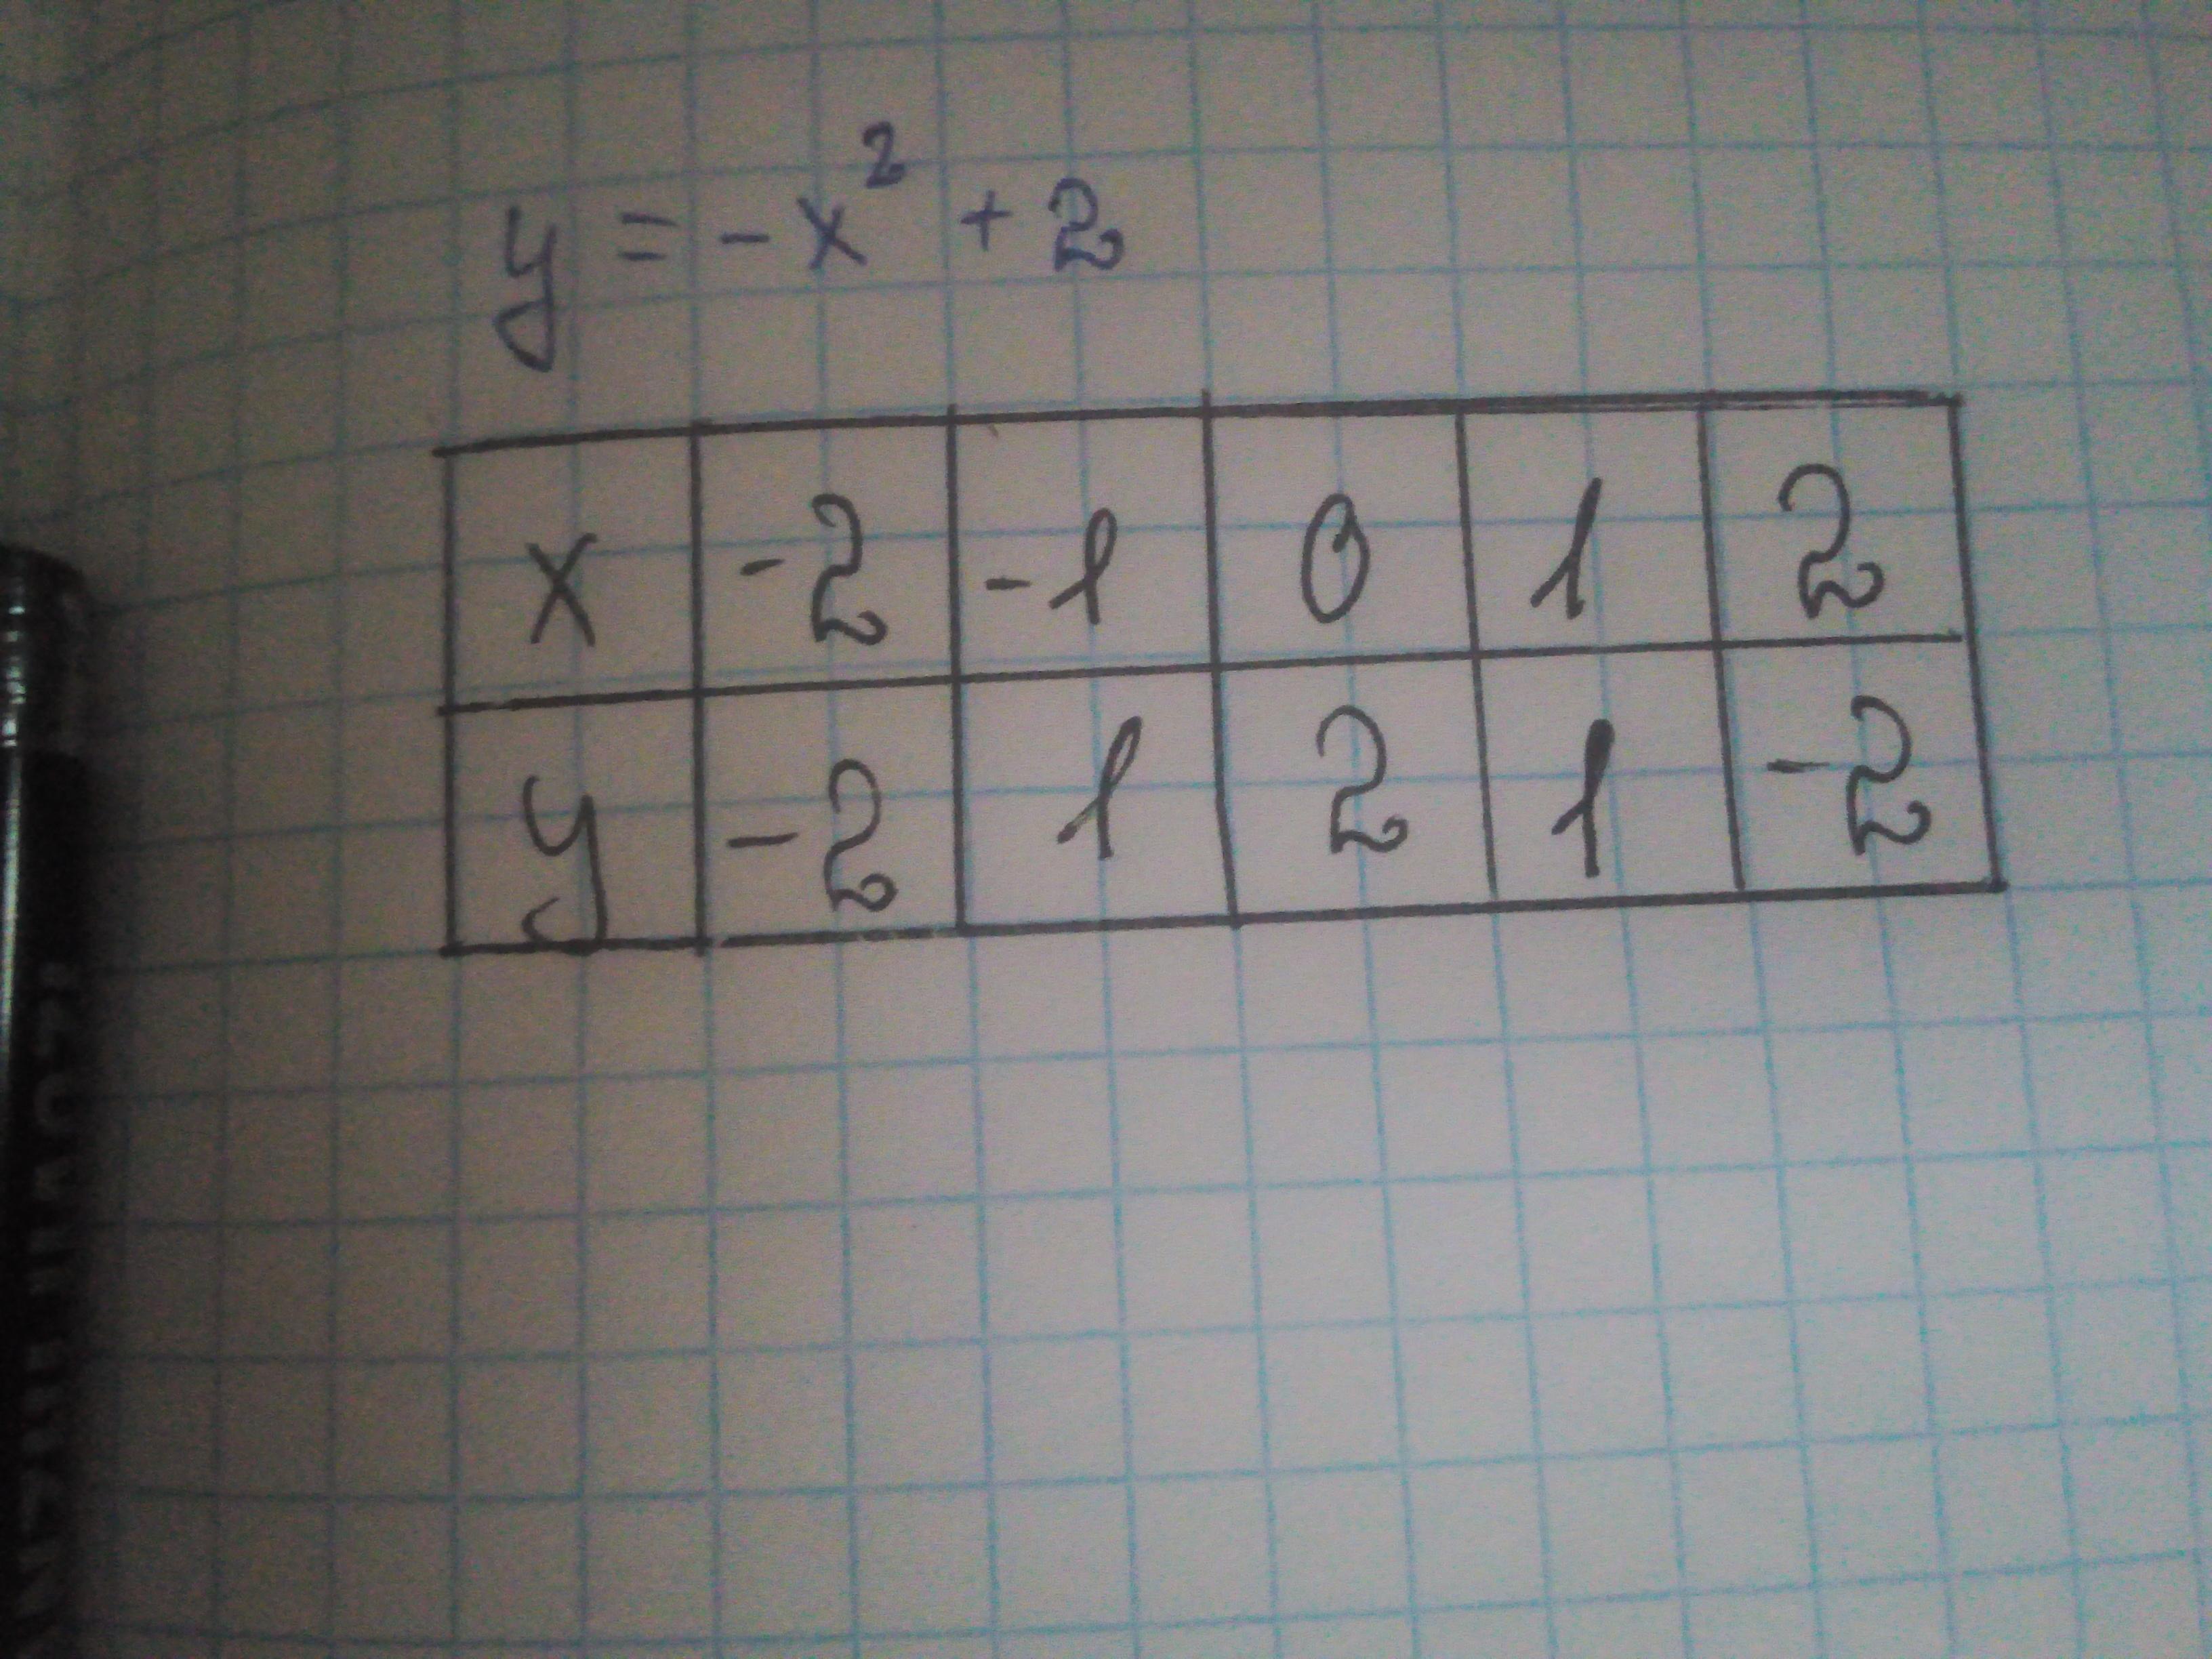 y = -x² + 2
x -2 -1 0 1 2
y -2 1 2 1 -2